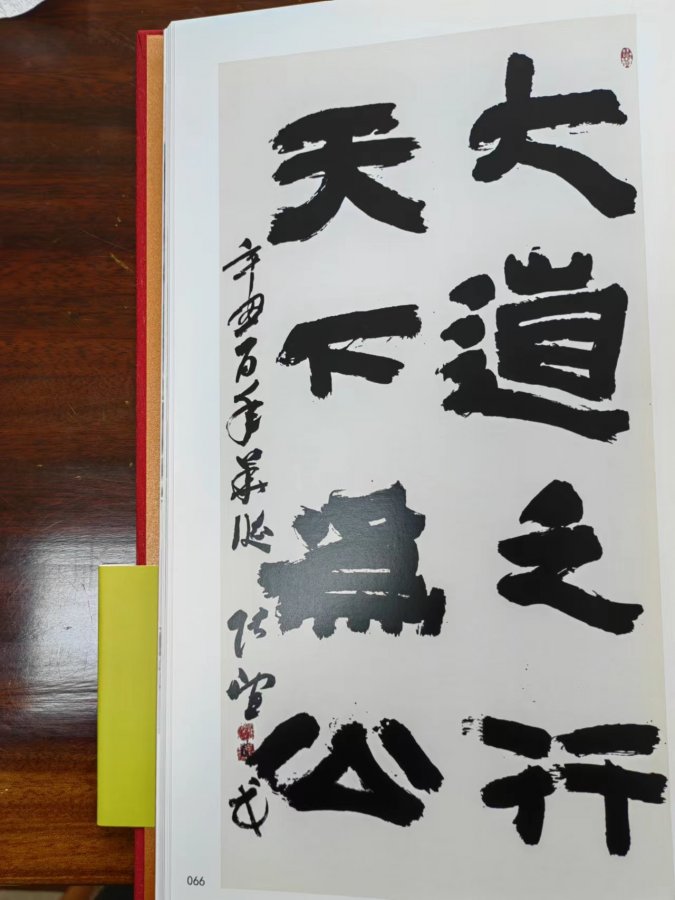 大道之行
天下為公
辛丑百年華誕
066